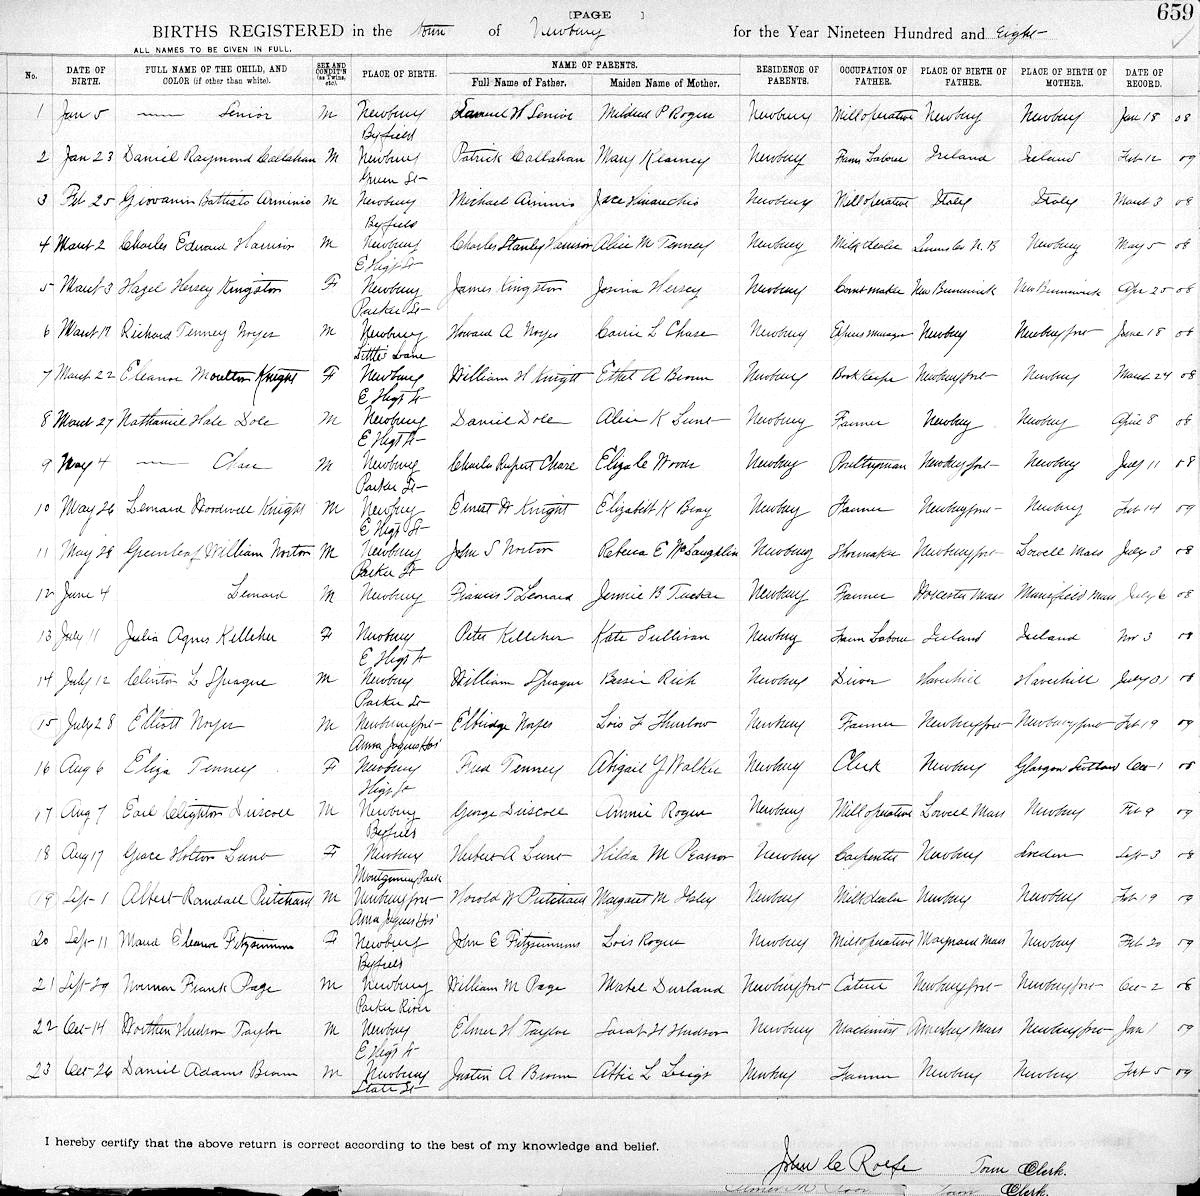 [PAGE ]
659
BIRTHS REGISTERED in the town of Newbury for the Year Nineteen Hundred and Eight
ALL NAMES TO BE GIVEN IN FULL.
No. DATE OF BIRTH. FULL NAME OF THE CHILD, AND COLOR (if other than white). SEX AND CONDIT'N (as Twins, etc.) PLACE OF BIRTH. NAME OF PARENTS. Full Name of Father. Maiden Name of Mother. RESIDENCE OF PARENTS. OCCUPATION OF FATHER. PLACE OF BIRTH OF FATHER. PLACE OF BIRTH OF MOTHER. DATE OF RECORD.
1 Jan 5 —— Senior M Newbury Samuel H Senior Mildred P Rogers Newbury Mill operative Newbury Newbury Jan 18 08
Byfield
2 Jan 23 Daniel Raymond Callahan M Newbury Patrick Callahan Mary Kearney Newbury Farm Laborer Ireland Ireland Feb 12 09
Green St
3 Feb 25 Giovanni Battisto Arminio M Newbury Michael Newbury Mill operative Italy Italy March 3 08
Byfield
4 March 2 Charles Edward Harrison M Newbury Charles Stanley Harrison Alice M Tenney Newbury Milk dealer N. B Newbury May 5 08
E High St
5 March 3 Hazel Hersey Kingston F Newbury James Kingston Hersey Newbury New Brunswick New Brunswick Apr 25 08
Parker St
6 March 17 Richard Tenney Noyes M Newbury Howard A Noyes Carrie L Chase Newbury Express manager Newbury Newburyport June 18 08
Little's Lane
7 March 22 Eleanor Moulton Knight F Newbury William H Knight Ethel A Brown Newbury Bookkeeper Newburyport Newbury March 24 08
E High St
8 March 27 Nathaniel Hale Dole M Newbury Daniel Dole Alice K Lunt Newbury Farmer Newbury Newbury April 8 08
E High St
9 May 4 —— Chase M Newbury Charles Rupert Chase Eliza C Woods Newbury Poultryman Newburyport Newbury July 11 08
Parker St
10 May 26 Leonard Hordwell Knight M Newbury Ernest W Knight Elizabeth K Bray Newbury Farmer Newburyport Newbury Feb 14 09
E High St
11 May 28 Greenleaf William Norton M Newbury John S Norton Rebecca E McLaughlin Newbury Shoemaker Newburyport Lowell Mass July 3 08
Parker St
12 June 4 Leonard M Newbury Francis T Leonard Jennie B Tucker Newbury Farmer Worcester Mass Mass July 6 08
13 July 11 Julia Agnes Kelliher F Newbury Peter Kelliher Kate Sullivan Newbury Farm Laborer Ireland Ireland Nov 3 08
E High St
14 July 12 Clinton L Sprague M Newbury William Sprague Bessie Rich Newbury Driver Haverhill Haverhill July 31 08
Parker St
15 July 28 Elliott Noyes M Newburyport Elbridge Noyes Lois F Thurlow Newbury Farmer Newburyport Newburyport Feb 19 09
Anna Jaques Hos'
16 Aug 6 Eliza Tenney F Newbury Fred Tenney Abigail Y Walker Newbury Clerk Newbury Glasgow Scotland Oct 1 08
High St
17 Aug 7 Earl Cleighton Driscoll M Newbury George Driscoll Annie Rogers Newbury Mill operative Lowell Mass Newbury Feb 9 09
Byfield
18 Aug 17 Grace Holton Lunt F Newbury Herbert A Lunt Hilda M Pearson Newbury Carpenter Newbury Sweden Sept 3 08
Montgomery Park
19 Sept 1 Albert Randall Pritchard M Newburyport Harold W Pritchard Margaret M Ilsley Newbury Milk dealer Newbury Newbury Feb 19 09
Anna Jaques Hos'
20 Sept 11 Maud Eleanor Fitzsimmons F Newbury John E Fitzsimmons Lois Rogers Newbury Mill operative Maynard Mass Newbury Feb 20 09
Byfield
21 Sept 29 Norman Frank Page M Newbury William M Page Mabel Durland Newburyport Caterer Newburyport Newburyport Oct 2 08
Parker River
22 Oct 14 Hudson Taylor M Newbury Elmer H Taylor Sarah H Hudson Newbury Machinist Amesbury Mass Newburyport Jan 1 09
E High St
23 Oct 26 Daniel Adams Brown M Newbury Justin A Brown Attie L Leigh Newbury Farmer Newbury Newbury Feb 5 09
State St
I hereby certify that the above return is correct according to the best of my knowledge and belief.
John C Rolfe Town Clerk.
Town Clerk.